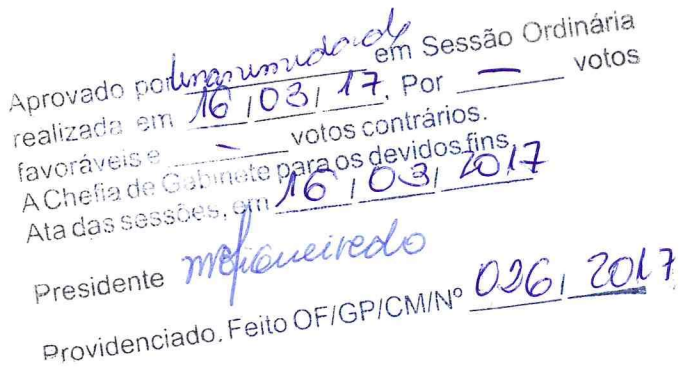 Aprovado por unanimidade em Sessão Ordinária
realizada em 16/03/17. Por — votos
favoráveis e — votos contrários.
A Chefia de Gabinete para os devidos fins,
Ata das sessões, em 16/03/2017
Presidente mfigueiredo
Providenciado, Feito OF/GP/CM/Nº 026/2017